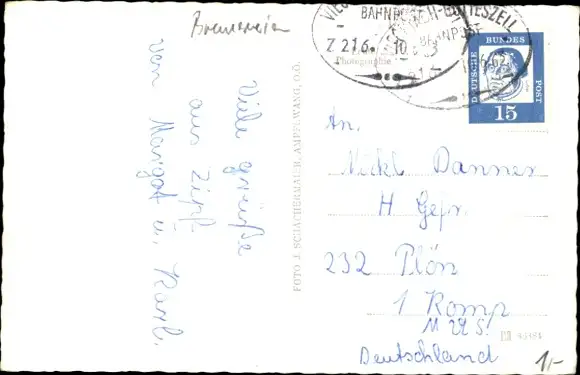 Brennerein
Viele grüße
aus Zipf
von Margot u. Karl.
FOTO J. SCHACHERMAIER, AMPFLWANG, O.Ö.
Photographie
BAHNPOST
Z 216
BAHNPOST
DEUTSCHE BUNDESPOST
15
An.
Nickl Danner
H Gefr.
232 Plön
1 Komp
M 22 S.
Deutschland
1,-